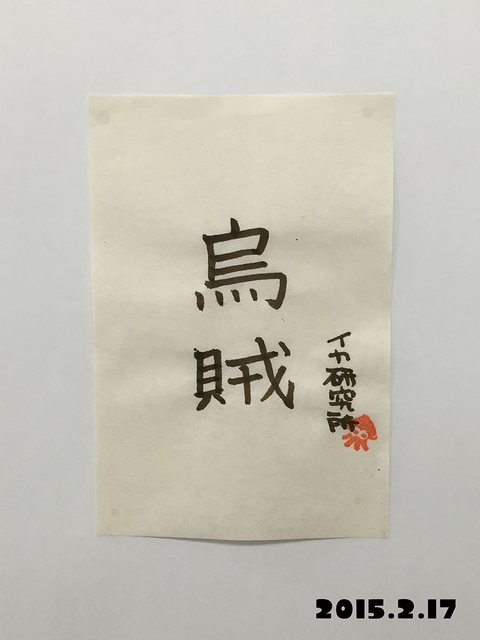 烏賊
イカ研究所
2015.2.17